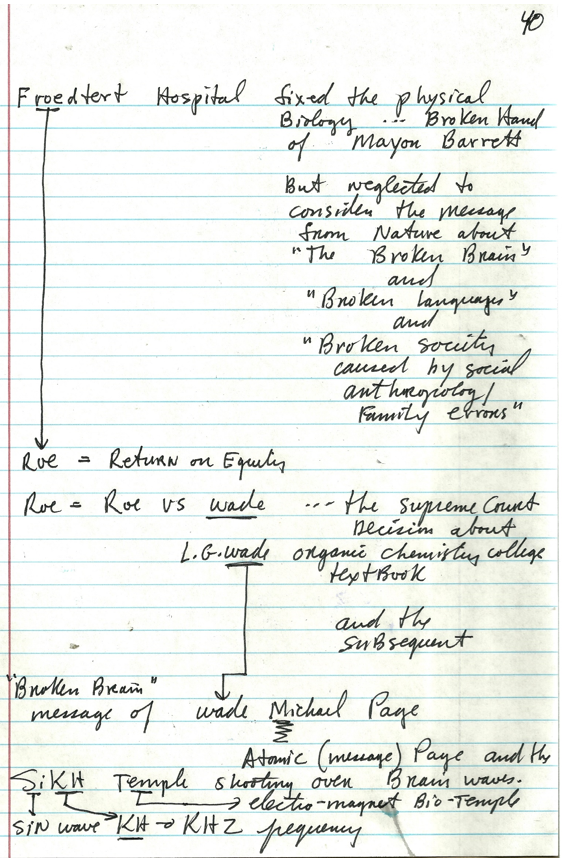 40
Froedtert Hospital fixed the physical
Biology ... Broken Hand
of Mayor Barrett
But neglected to
consider the message
from Nature about
"The Broken Brain"
and
"Broken languages"
and
"Broken society
caused by social
anthropology/
Family errors"
Roe = Return on Equity
Roe = Roe vs wade ... the Supreme Court
Decision about
L.G. wade organic chemistry college
textBook
and the
SuBsequent
"Broken Brain"
message of wade Michael Page
Atomic (message) Page and the
SiKH Temple shooting over Brain waves.
electro-magnet Bio-Temple
SiN wave KH → KHZ frequency